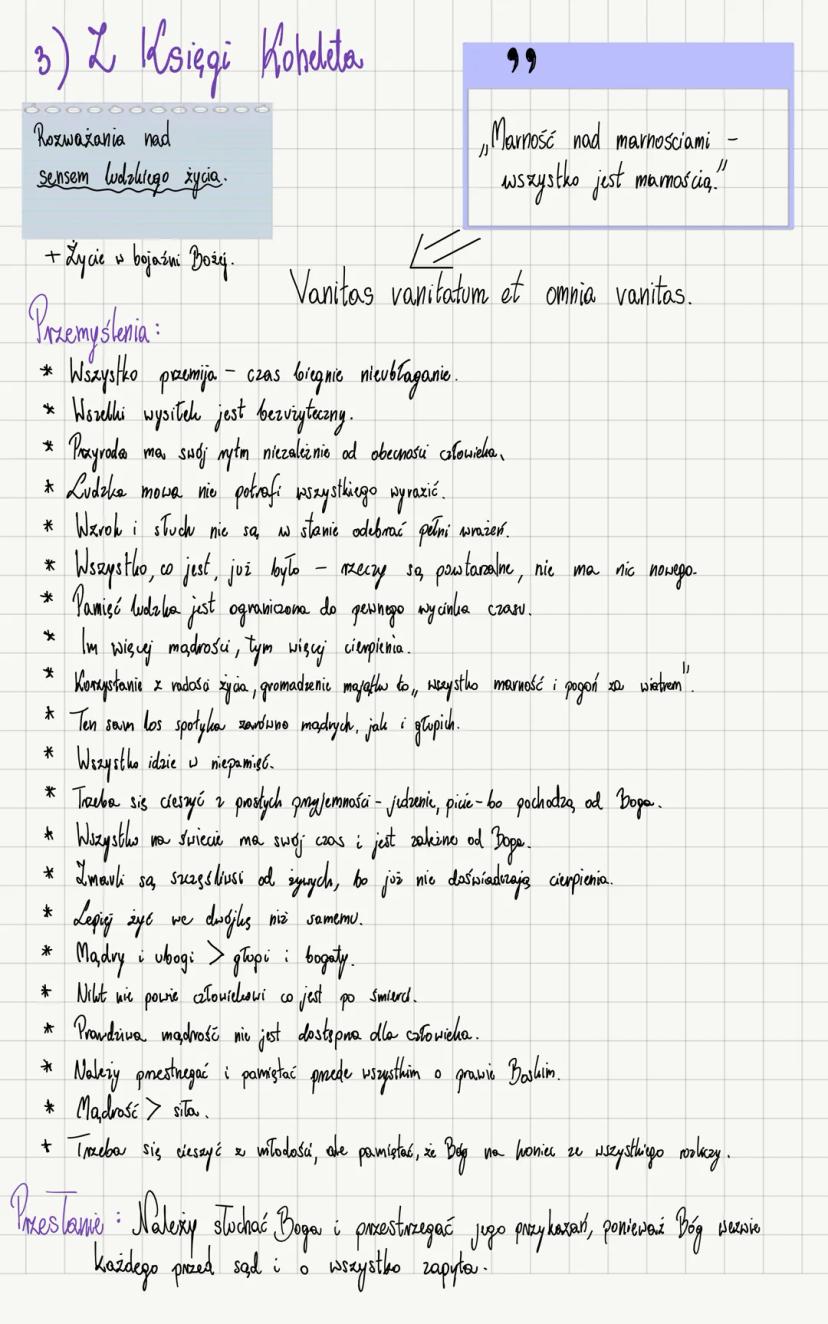 3) Z Księgi Koheleta
"
Rozważania nad
sensem ludzkiego życia.
„Marność nad marnościami –
wszystko jest marnością."
+ Życie w bojaźni Bożej.
Vanitas vanitatum et omnia vanitas.
Przemyślenia:
* Wszystko przemija – czas biegnie nieubłaganie.
* Wszelki wysiłek jest bezużyteczny.
* Przyroda ma swój rytm niezależnie od obecności człowieka.
* Ludzka mowa nie potrafi wszystkiego wyrazić.
* Wzrok i słuch nie są w stanie odebrać pełni wrażeń.
* Wszystko, co jest, już było – rzeczy są powtarzalne, nie ma nic nowego.
* Pamięć ludzka jest ograniczona do pewnego wycinka czasu.
* Im więcej mądrości, tym więcej cierpienia.
* Korzystanie z radości życia, gromadzenie majątku to „wszystko marność i pogoń za wiatrem".
* Ten sam los spotyka zarówno mądrych, jak i głupich.
* Wszystko idzie w niepamięć.
* Trzeba się cieszyć z prostych przyjemności – jedzenie, picie – bo pochodzą od Boga.
* Wszystko na świecie ma swój czas i jest zależne od Boga.
* Zmarli są szczęśliwsi od żywych, bo już nie doświadczają cierpienia.
* Lepiej żyć we dwójkę niż samemu.
* Mądry i ubogi > głupi i bogaty.
* Nikt nie powie człowiekowi co jest po śmierci.
* Prawdziwa mądrość nie jest dostępna dla człowieka.
* Należy przestrzegać i pamiętać przede wszystkim o prawie Boskim.
* Mądrość > siła.
+ Trzeba się cieszyć z młodości, ale pamiętać, że Bóg na koniec ze wszystkiego rozliczy.
Przesłanie: Należy słuchać Boga i przestrzegać jego przykazań, ponieważ Bóg wezwie
każdego przed sąd i o wszystko zapyta.